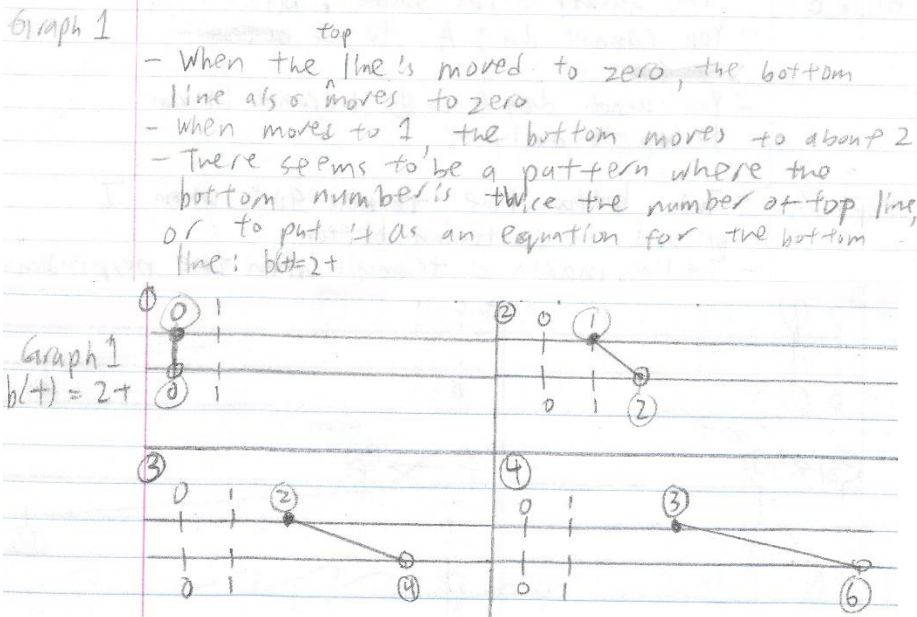 Graph 1
top
- When the ^ line is moved to zero, the bottom
line also moves to zero
- When moves to 1, the bottom moves to about 2
- There seems to be a pattern where the
bottom number is twice the number of top line,
or to put it as an equation for the bottom
line: b(t)=2t
① 0 1
② 0 1
Graph 1
b(t) = 2t
0 1
0 1 2
③ 0 1 2
④ 0 1 3
0 1 4
0 1 6